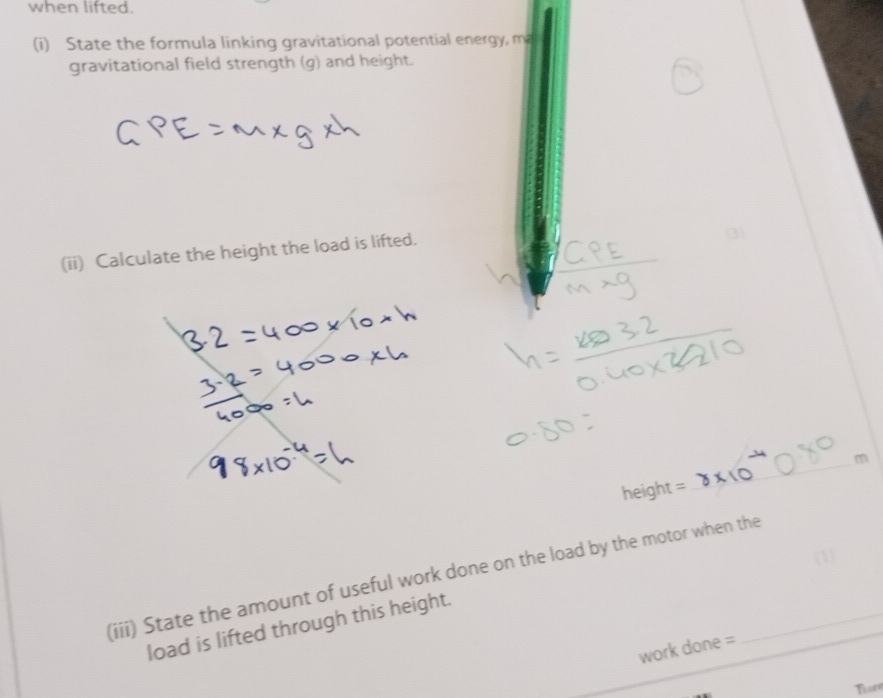 when lifted.
(i) State the formula linking gravitational potential energy,
gravitational field strength (g) and height.
GPE = m x g x h
(ii) Calculate the height the load is lifted.
(3)
3.2 = 400 x 10 x h
3.2 = 4000 x h
4000 = h
98x10⁻⁴ = h
h GPE
m x g
h = 3.2
0.40 x 10
0.80 =
height = 8x10⁻⁴ 0.80 m
(iii) State the amount of useful work done on the load by the motor when the
load is lifted through this height.
(1)
work done =